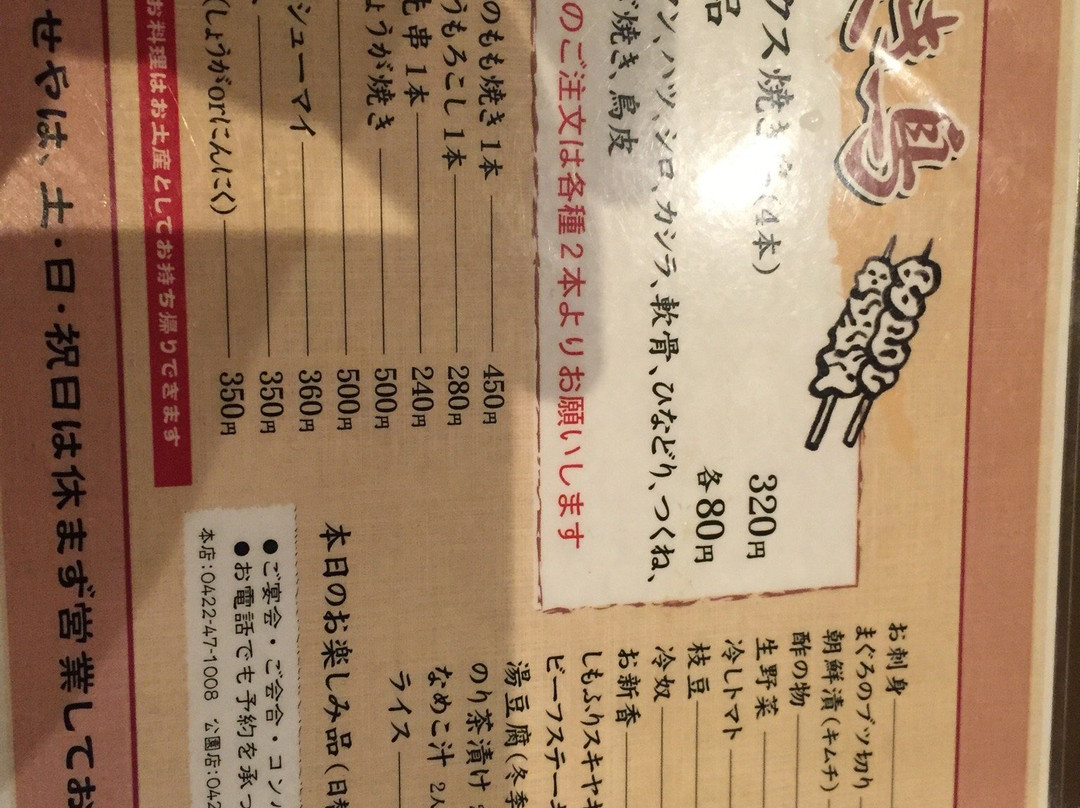 き鳥
クス焼き (4本) 320円
品 各80円
ン、ハツ、シロ、カシラ、軟骨、ひなどり、つくね、
焼き、鳥皮
のご注文は各種2本よりお願いします
のもも焼き1本 450円
うもろこし1本 280円
串1本 240円
ょうが焼き 500円
500円
シューマイ 360円
350円
(しょうがorにんにく) 350円
お料理はお土産としてお持ち帰りできます
お刺身
まぐろのブツ切り
朝鮮漬(キムチ)
酢の物
生野菜
冷しトマト
枝豆
冷奴
お新香
しもふりスキヤキ
ビーフステーキ
湯豆腐(冬季
のり茶漬け
なめこ汁 2人
ライス
本日のお楽しみ品(日替
●ご宴会・ご会合・コンパ
●お電話でも予約を承っ
本店:0422-47-1008 公園店:042
せやは、土・日・祝日は休まず営業してお